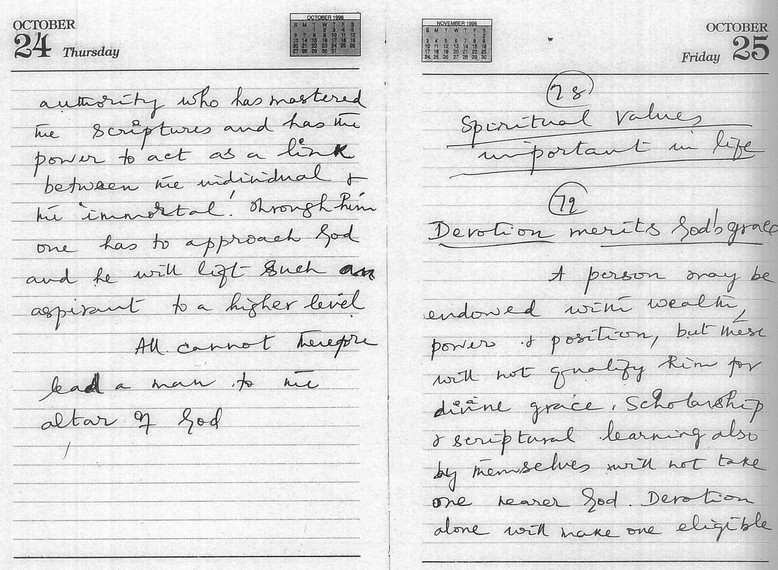 OCTOBER
24 Thursday
OCTOBER 1996
authority who has mastered
the scriptures and has the
power to act as a link
between the individual &
the 'immortal'. Through him
one has to approach God
and he will lift such an
aspirant to a higher level
All cannot therefore
lead a man to the
altar of God
NOVEMBER 1996
OCTOBER
Friday 25
78
Spiritual values
important in life
79
Devotion merits God's grace
A person may be
endowed with wealth,
power & position, but these
will not qualify him for
divine grace. Scholarship
& scriptural learning also
by themselves will not take
one nearer God. Devotion
alone will make one eligible